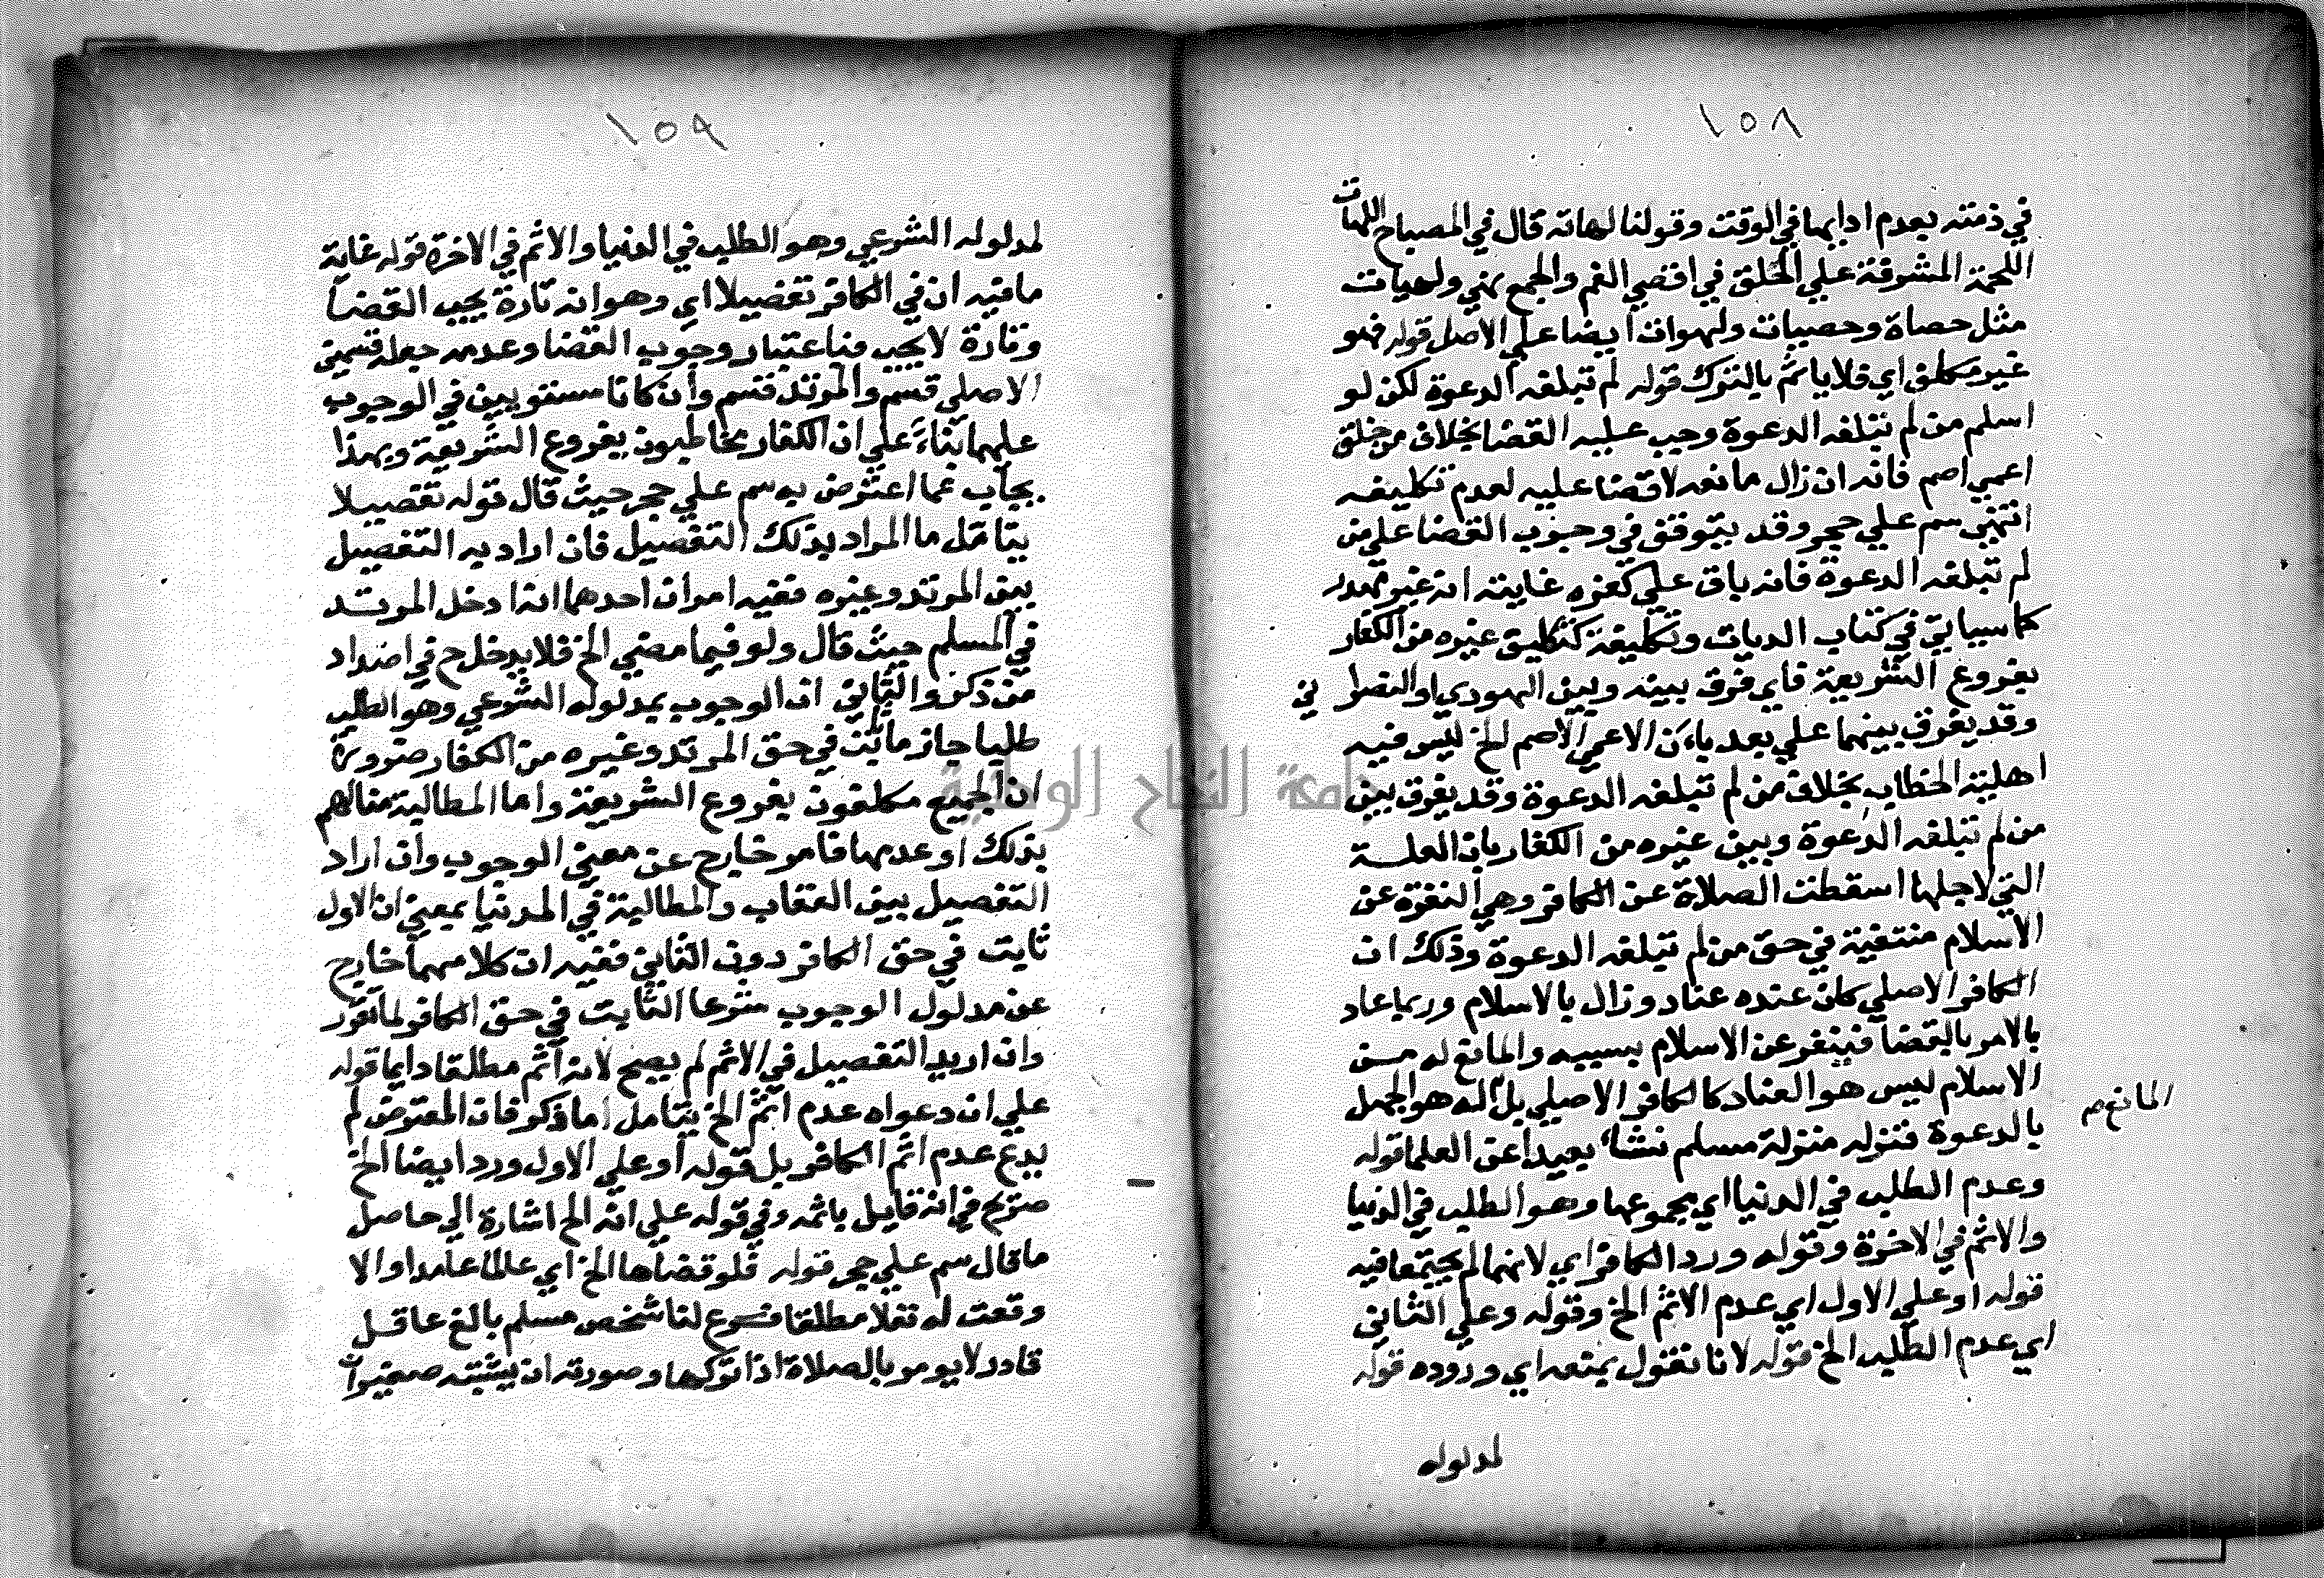 ١٥٨
في ذمته بعدم ادايها في الوقت وقولنا لهاته قال في المصباح اللهات
اللحمة المشرفة علي الحلق في اقصي الفم والجمع لهي ولهيات
مثل حصاة وحصيات ولهوات ايضا علي الاصل قوله فهو
غير مكلف اي فلا ياثم بالترك قوله لم تبلغه الدعوة لكن لو
اسلم من لم تبلغه الدعوة وجب عليه القضا بخلاف من خلق
اعمي اصم فانه ان زال مانعه لا قضا عليه لعدم تكليفه
انتهي سم علي حجر وقد يتوقف في وجوب القضا علي من
لم تبلغه الدعوة فانه باق علي كفره غايته انه غير مهدر
كما سياتي في كتاب الديات وتكليفه كتكليف غيره من الكفار
بفروع الشريعة فاي فرق بينه وبين اليهودي او النصرا ني
وقد يفرق بينهما علي بعد بان الاعمي الاصم الخ ليس فيه
اهلية الخطاب بخلاف من لم تبلغه الدعوة وقد يفرق بين
من لم تبلغه الدعوة وبين غيره من الكفار بان العلة
التي لاجلها اسقطت الصلاة عن الكافر وهي النفرة عن
الاسلام منتفية في حق من لم تبلغه الدعوة وذلك ان
الكافر الاصلي كان عنده عناد وزال بالاسلام وربما عاد
بالامر بالقضا فينفر عن الاسلام بسببه والمانع له من
الاسلام ليس هو العناد كالكافر الاصلي بل اله هو الجهل
المانع صح
بالدعوة فنزله منزلة مسلم نشا بعيدا عن العلما قوله
وعدم الطلب في الدنيا اي مجموعها وهو الطلب في الدنيا
والاثم في الاخرة وقوله ورد الكافر اي لانهما لم يجتمعا فيه
قوله او علي الاول اي عدم الاثم الخ وقوله وعلي الثاني
اي عدم الطلب الخ قوله لانا نقول يمنعه اي وروده قوله
لمدلوله
١٥٩
لمدلوله الشرعي وهو الطلب في الدنيا والاثم في الاخرة قوله غاية
مافيه ان في الكافر تفصيلا اي وهو انه تارة يجب القضا
وتارة لا يجب فباعتبار وجوب القضا وعدمه جعله قسمين
الاصلي قسم والمرتد قسم وان كانا مستويين في الوجوب
عليهما بناء علي ان الكفار مخاطبون بفروع الشريعة وبهذا
يجاب عما اعترض به سم علي حجر حيث قال قوله تفصيلا
يتامل ما المراد بذلك التفصيل فان اراد به التفصيل
بين المرتد وغيره ففيه امران احدهما انه ادخل المرتد
في المسلم حيث قال ولو فيما مضي الخ فلا يدخل ح في اضداد
من ذكر والثاني ان الوجوب بمدلوله الشرعي وهو الطلب
طلبا جازما ثابت في حق المرتد وغيره من الكفار ضرورة
ان الجميع مكلفون بفروع الشريعة واما المطالبة منا لهم
بذلك او عدمها فامر خارج عن معني الوجوب وان اراد
التفصيل بين العقاب والمطالبة في الدنيا بمعني ان الاول
ثابت في حق الكافر دون الثاني ففيه ان كلا منهما خارج
عن مدلول الوجوب شرعا الثابت في حق الكافر لما تقرر
وان اريد التفصيل في الاثم لم يصح لانه اثم مطلقا دايما قوله
علي ان دعواه عدم اثم الخ يتامل اما ذكر فان المعترض لم
يدع عدم اثم الكافر بل قوله او علي الاول ورد ايضا الخ
صريح في انه قايل باثمه وفي قوله علي انه الخ اشارة الي حاصل
ماقال سم علي حجر قوله فلو قضاها الخ اي عالما عامدا والا
وقعت له نفلا مطلقا فرع لنا شخص مسلم بالغ عاقل
قادر لا يومر بالصلاة اذا تركها وصورته ان يشتبه صغيران